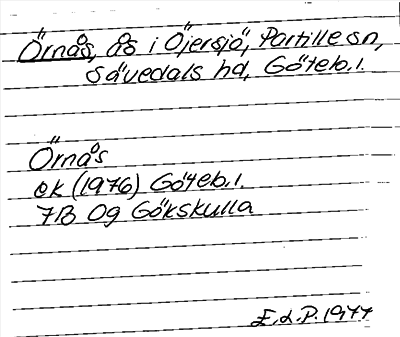 Örnås, ås i Öjersjö, Partille sn,
Sävedals hd, Göteb. l.
Örnås
ek (1976) Göteb. l.
7B 0g Gökskulla
E.L.P. 1977